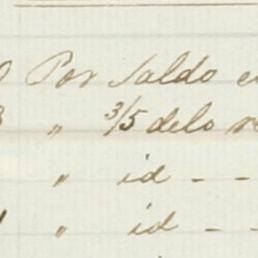 Por Saldo
" 3/5 de lo
" id - -
" id - -